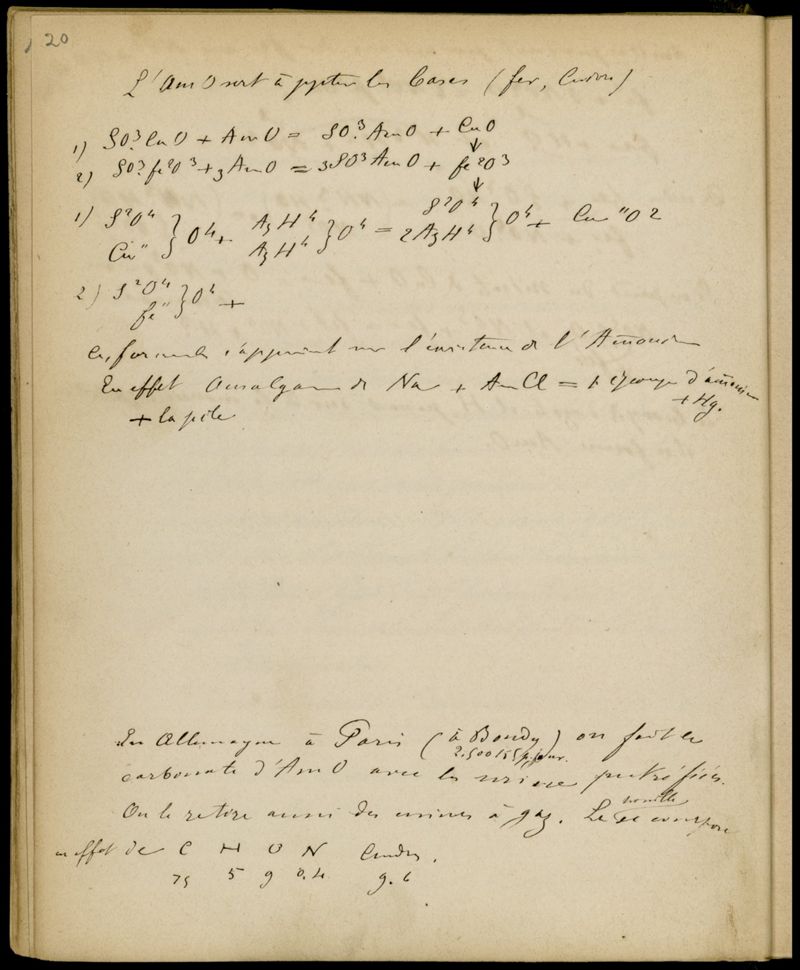 20
L'AmO sert à ppter les bases (fer, Cuivre)
1) SO³.CuO + AmO = SO³.AmO + CuO ↓
2) SO³.fe²O³ + 3AmO = 3SO³AmO + fe²O³ ↓
1) S²O⁴ Cu" } O⁴ + AzH⁴ AzH⁴ } O⁴ = S²O⁴ 2AzH⁴ } O⁴ + Cu"O2
2) S²O⁴ fe" } O⁴ +
Ces formules s'appuient sur l'existence de l'Amonium
En effet Amalgame de Na + AmCl = + éponge d'amonium
+ Hg.
+ la pile
En Allemagne à Paris (à Bondy) on fait le
2.500 p. jour.
carbonate d'AmO avec les urines putréfiées.
On le retire aussi des usines à gaz. La houille se compose
en effet de C H O N Cendres.
75 5 9 0.4 9.6